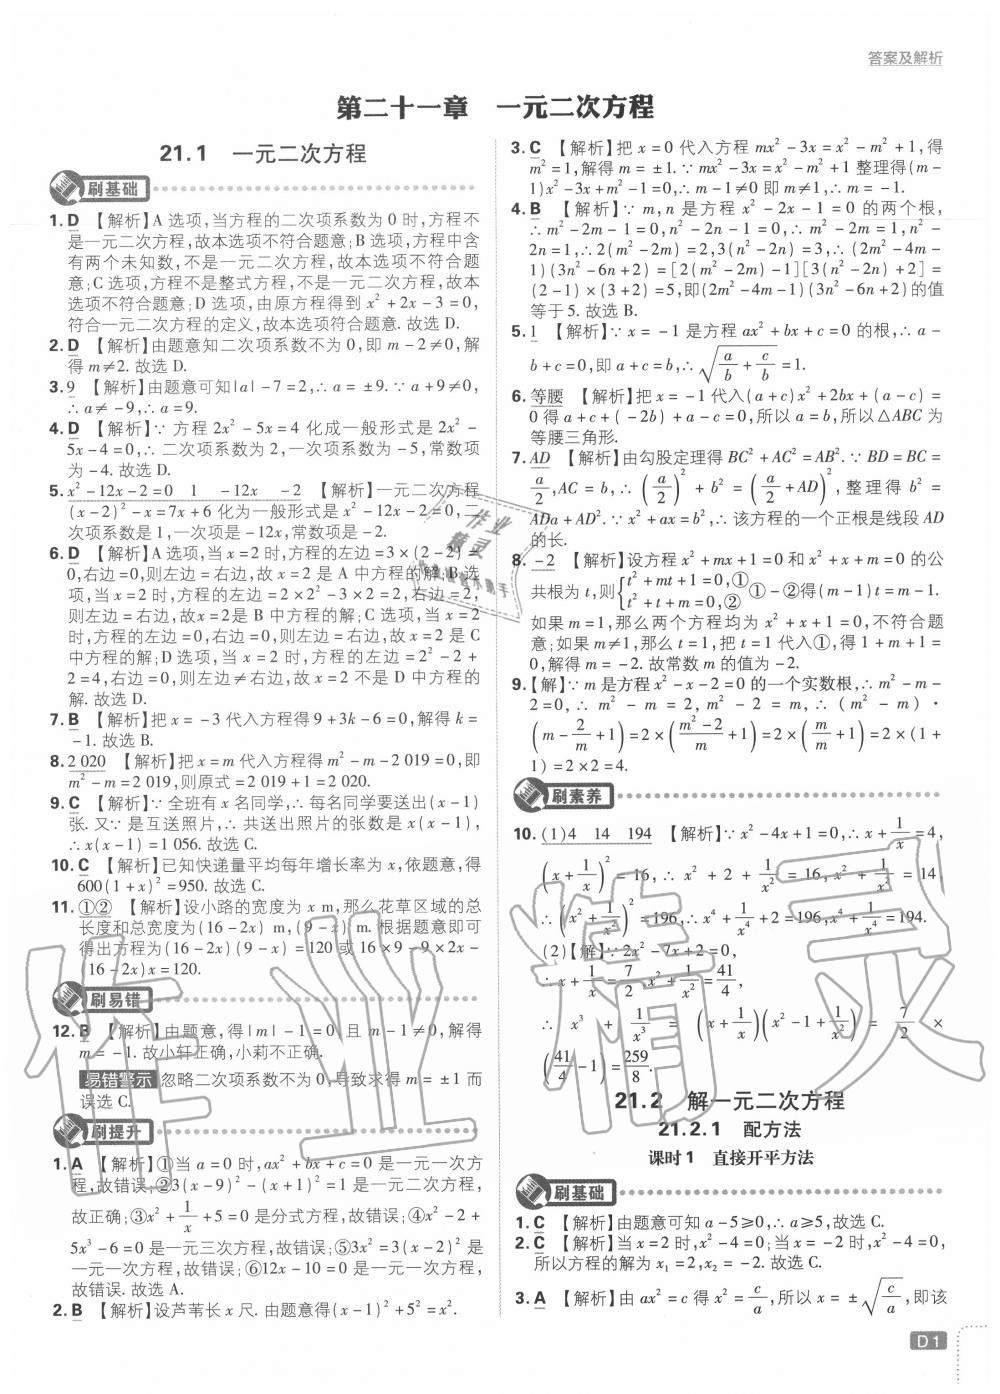 答案及解析
第二十一章 一元二次方程
21.1 一元二次方程
刷基础
1. D 【解析】A 选项,当方程的二次项系数为 0 时,方程不
是一元二次方程,故本选项不符合题意;B 选项,方程中含
有两个未知数,不是一元二次方程,故本选项不符合题
意;C 选项,方程不是整式方程,不是一元二次方程,故本
选项不符合题意;D 选项,由原方程得到 x²+2x-3=0,
符合一元二次方程的定义,故本选项符合题意. 故选 D.
2. D 【解析】由题意知二次项系数不为 0,即 m-2≠0,解
得 m≠2. 故选 D.
3. 9 【解析】由题意可知|a|-7=2,∴a=±9. ∵a+9≠0,
∴a≠-9,∴a=9.
4. D 【解析】∵方程 2x²-5x=4 化成一般形式是 2x²-
5x-4=0,∴二次项系数为 2,一次项系数为 -5,常数项
为 -4. 故选 D.
5. x²-12x-2=0 1 -12x -2 【解析】一元二次方程
(x-2)²-x=7x+6 化为一般形式是 x²-12x-2=0,二
次项系数是 1,一次项是 -12x,常数项是 -2.
6. D 【解析】A 选项,当 x=2 时,方程的左边=3×(2-2)=
0,右边=0,则左边=右边,故 x=2 是 A 中方程的解;B 选
项,当 x=2 时,方程的左边=2×2²-3×2=2,右边=2,
则左边=右边,故 x=2 是 B 中方程的解;C 选项,当 x=2
时,方程的左边=0,右边=0,则左边=右边,故 x=2 是 C
中方程的解;D 选项,当 x=2 时,方程的左边=2²-2+
2=4,右边=0,则左边≠右边,故 x=2 不是 D 中方程的
解. 故选 D.
7. B 【解析】把 x=-3 代入方程得 9+3k-6=0,解得 k=
-1. 故选 B.
8. 2 020 【解析】把 x=m 代入方程得 m²-m-2 019=0,即
m²-m=2 019,则原式=2 019+1=2 020.
9. C 【解析】∵全班有 x 名同学,∴每名同学要送出(x-1)
张. 又∵是互送照片,∴共送出照片的张数是 x(x-1),
∴x(x-1)=1 056. 故选 C.
10. C 【解析】已知快递量平均每年增长率为 x,依题意,得
600(1+x)²=950. 故选 C.
11. ①② 【解析】设小路的宽度为 x m,那么花草区域的总
长度和总宽度为(16-2x) m,(9-x) m. 根据题意即可
得出方程为(16-2x)(9-x)=120 或 16×9-9×2x-
(16-2x)x=120.
刷易错
12. B 【解析】由题意,得|m|-1=0,且 m-1≠0,解得
m=-1. 故小轩正确,小莉不正确.
易错警示 忽略二次项系数不为 0,导致求得 m=±1 而
误选 C.
刷提升
1. A 【解析】①当 a=0 时,ax²+bx+c=0 是一元一次方
程,故错误;②3(x-9)²-(x+1)²=1 是一元二次方程,
故正确;③x²+1/x+5=0 是分式方程,故错误;④x²-2+
5x³-6=0 是一元三次方程,故错误;⑤3x²=3(x-2)² 是
一元一次方程,故错误;⑥12x-10=0 是一元一次方程,
故错误. 故选 A.
2. B 【解析】设芦苇长 x 尺. 由题意得(x-1)²+5²=x².
3. C 【解析】把 x=0 代入方程 mx²-3x=x²-m²+1,得
m²=1,解得 m=±1. ∵mx²-3x=x²-m²+1 整理得(m-
1)x²-3x+m²-1=0,∴m-1≠0 即 m≠1,∴m=-1.
4. B 【解析】∵m,n 是方程 x²-2x-1=0 的两个根,
∴m²-2m-1=0,n²-2n-1=0,∴m²-2m=1,n²-
2n=1,∴2(m²-2m)=2,3(n²-2n)=3,∴(2m²-4m-
1)(3n²-6n+2)=[2(m²-2m)-1][3(n²-2n)+2]=
(2-1)×(3+2)=5,即(2m²-4m-1)(3n²-6n+2)的值
等于 5. 故选 B.
5. 1 【解析】∵x=-1 是方程 ax²+bx+c=0 的根,∴a-
b+c=0,即 a+c=b,∴√(a/b+c/b)=1.
6. 等腰 【解析】把 x=-1 代入(a+c)x²+2bx+(a-c)=
0 得 a+c+(-2b)+a-c=0,所以 a=b,所以△ABC 为
等腰三角形.
7. AD 【解析】由勾股定理得 BC²+AC²=AB². ∵BD=BC=
a/2,AC=b,∴(a/2)²+b²=(a/2+AD)²,整理得 b²=
ADa+AD². ∵x²+ax=b²,∴该方程的一个正根是线段 AD
的长.
8. -2 【解析】设方程 x²+mx+1=0 和 x²+x+m=0 的公
共根为 t,则{t²+mt+1=0,① t²+t+m=0,② ①-②得(m-1)t=m-1.
如果 m=1,那么两个方程均为 x²+x+1=0,不符合题
意;如果 m≠1,那么 t=1,把 t=1 代入①,得 1+m+1=
0,解得 m=-2. 故常数 m 的值为 -2.
9. 【解】∵m 是方程 x²-x-2=0 的一个实数根,∴m²-m-
2=0,∴m²-m=2,m²-2=m,∴(m²-m)·
(m-2/m+1)=2×((m²-2)/m+1)=2×(m/m+1)=2×(1+
1)=2×2=4.
刷素养
10. (1)4 14 194 【解析】∵x²-4x+1=0,∴x+1/x=4,
(x+1/x)²=16,∴x²+2+1/x²=16,x²+1/x²=14.
∴(x²+1/x²)²=196,∴x⁴+1/x⁴+2=196,x⁴+1/x⁴=194.
(2)【解】∵2x²-7x+2=0,
∴x+1/x=7/2,x²+1/x²=41/4,
∴x³+1/x³=(x+1/x)(x²-1+1/x²)=7/2×
(41/4-1)=259/8.
21.2 解一元二次方程
21.2.1 配方法
课时1 直接开平方法
刷基础
1. C 【解析】由题意可知 a-5≥0,∴a≥5,故选 C.
2. C 【解析】当 x=2 时,x²-4=0;当 x=-2 时,x²-4=0,
所以方程的解为 x₁=2,x₂=-2. 故选 C.
3. A 【解析】由 ax²=c 得 x²=c/a,所以 x=±√(c/a),即该
D1
作业精灵
作业
精灵